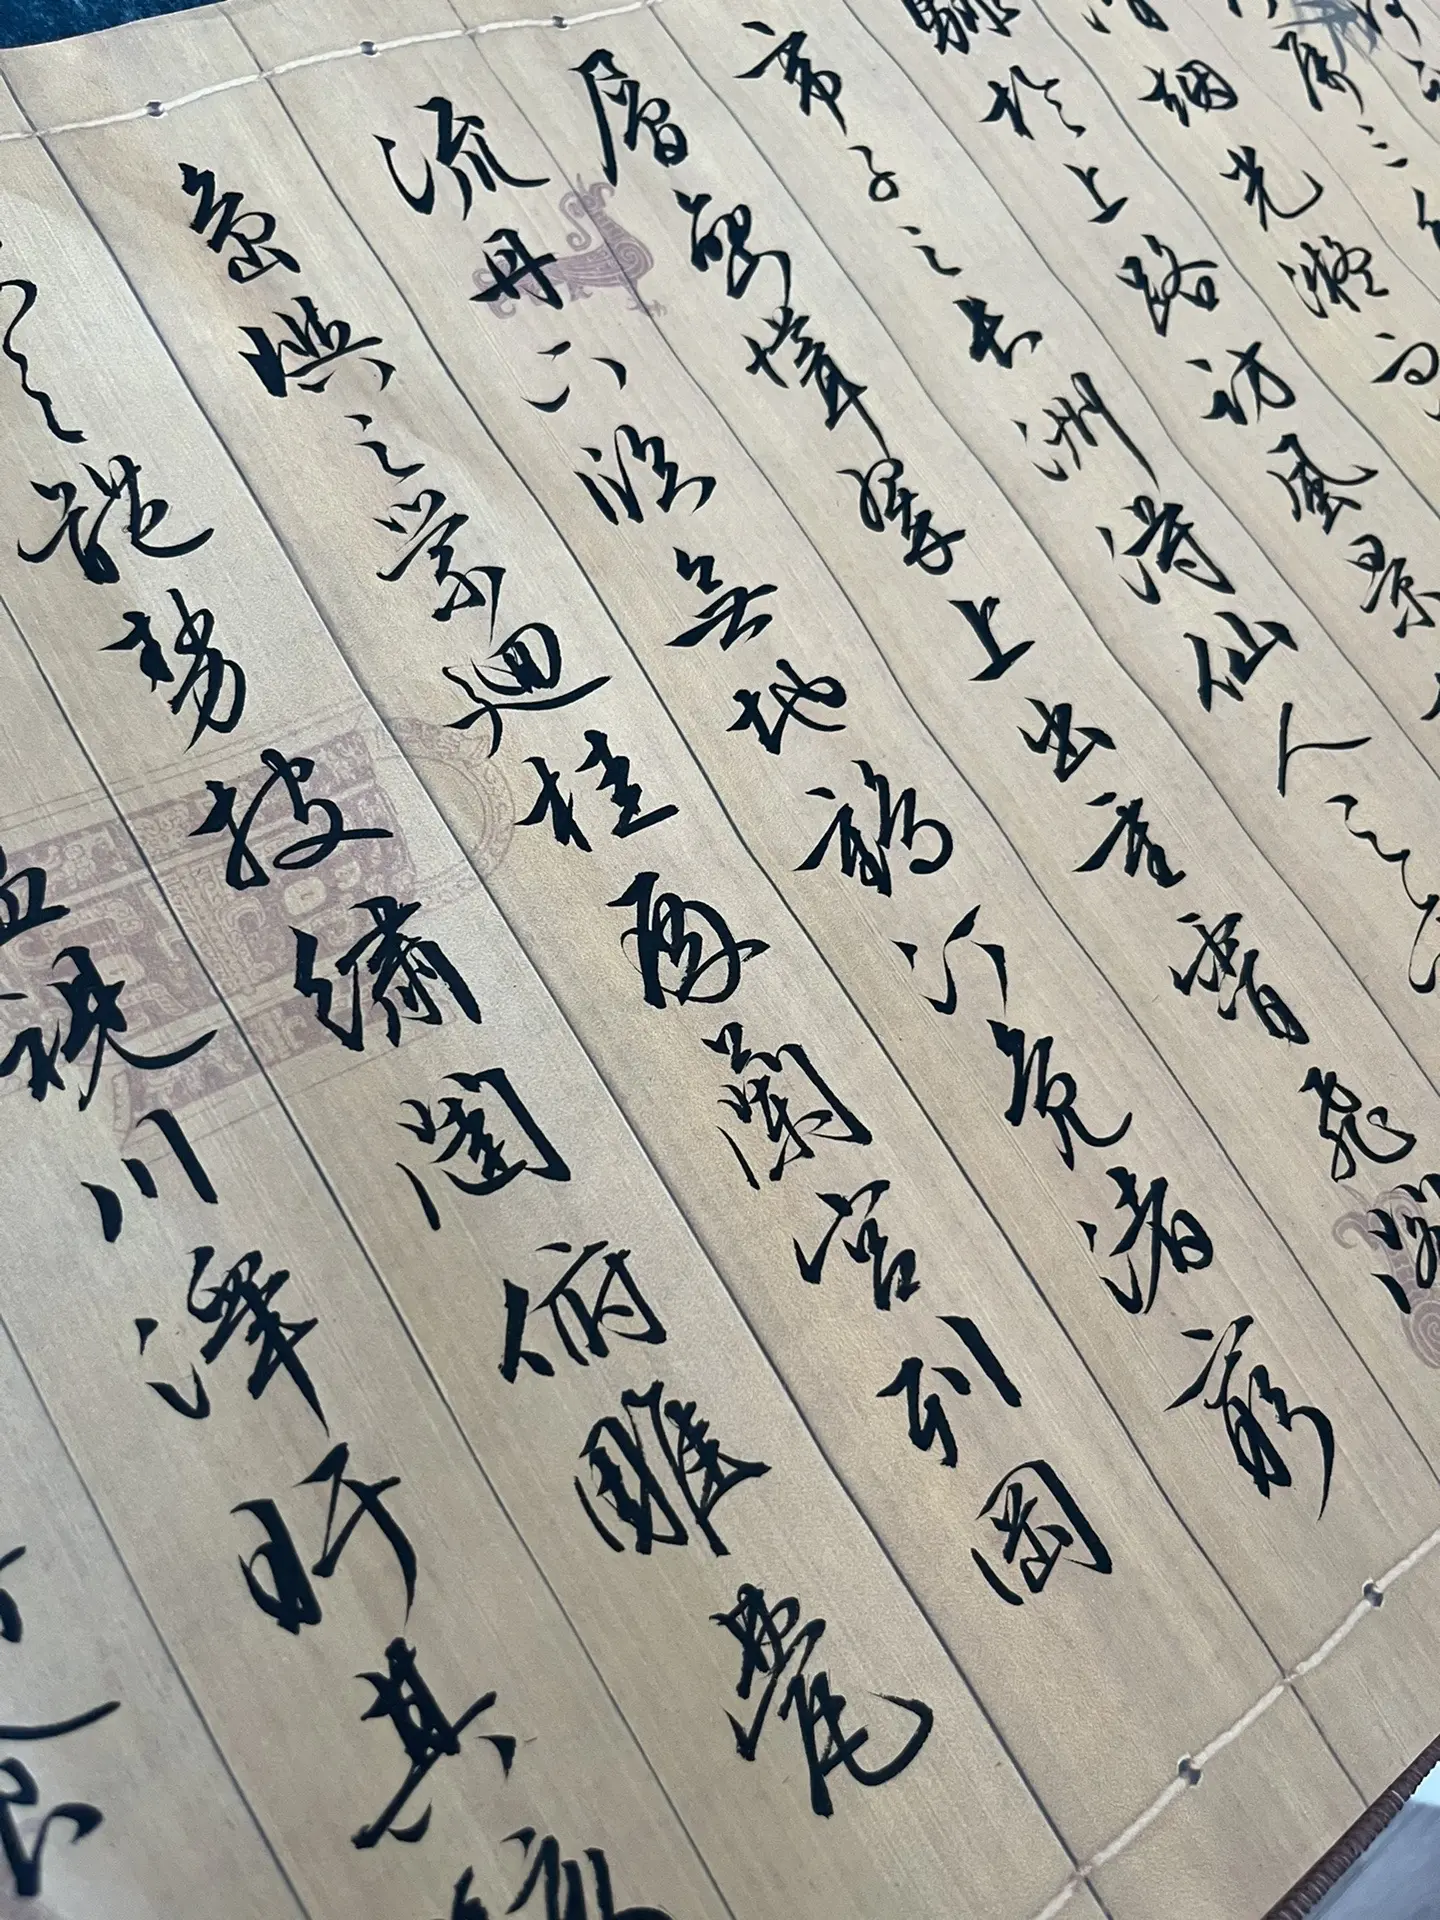 屬三秋
清烟光凝而
騑於上路訪風景
帝子之長洲得仙人之
層巒聳翠上出重霄飛閣
流丹下臨無地鶴汀鳧渚窮
島嶼之縈迴桂殿蘭宮列岡
之體勢披繡闥俯雕甍
盈視川澤盱其駭